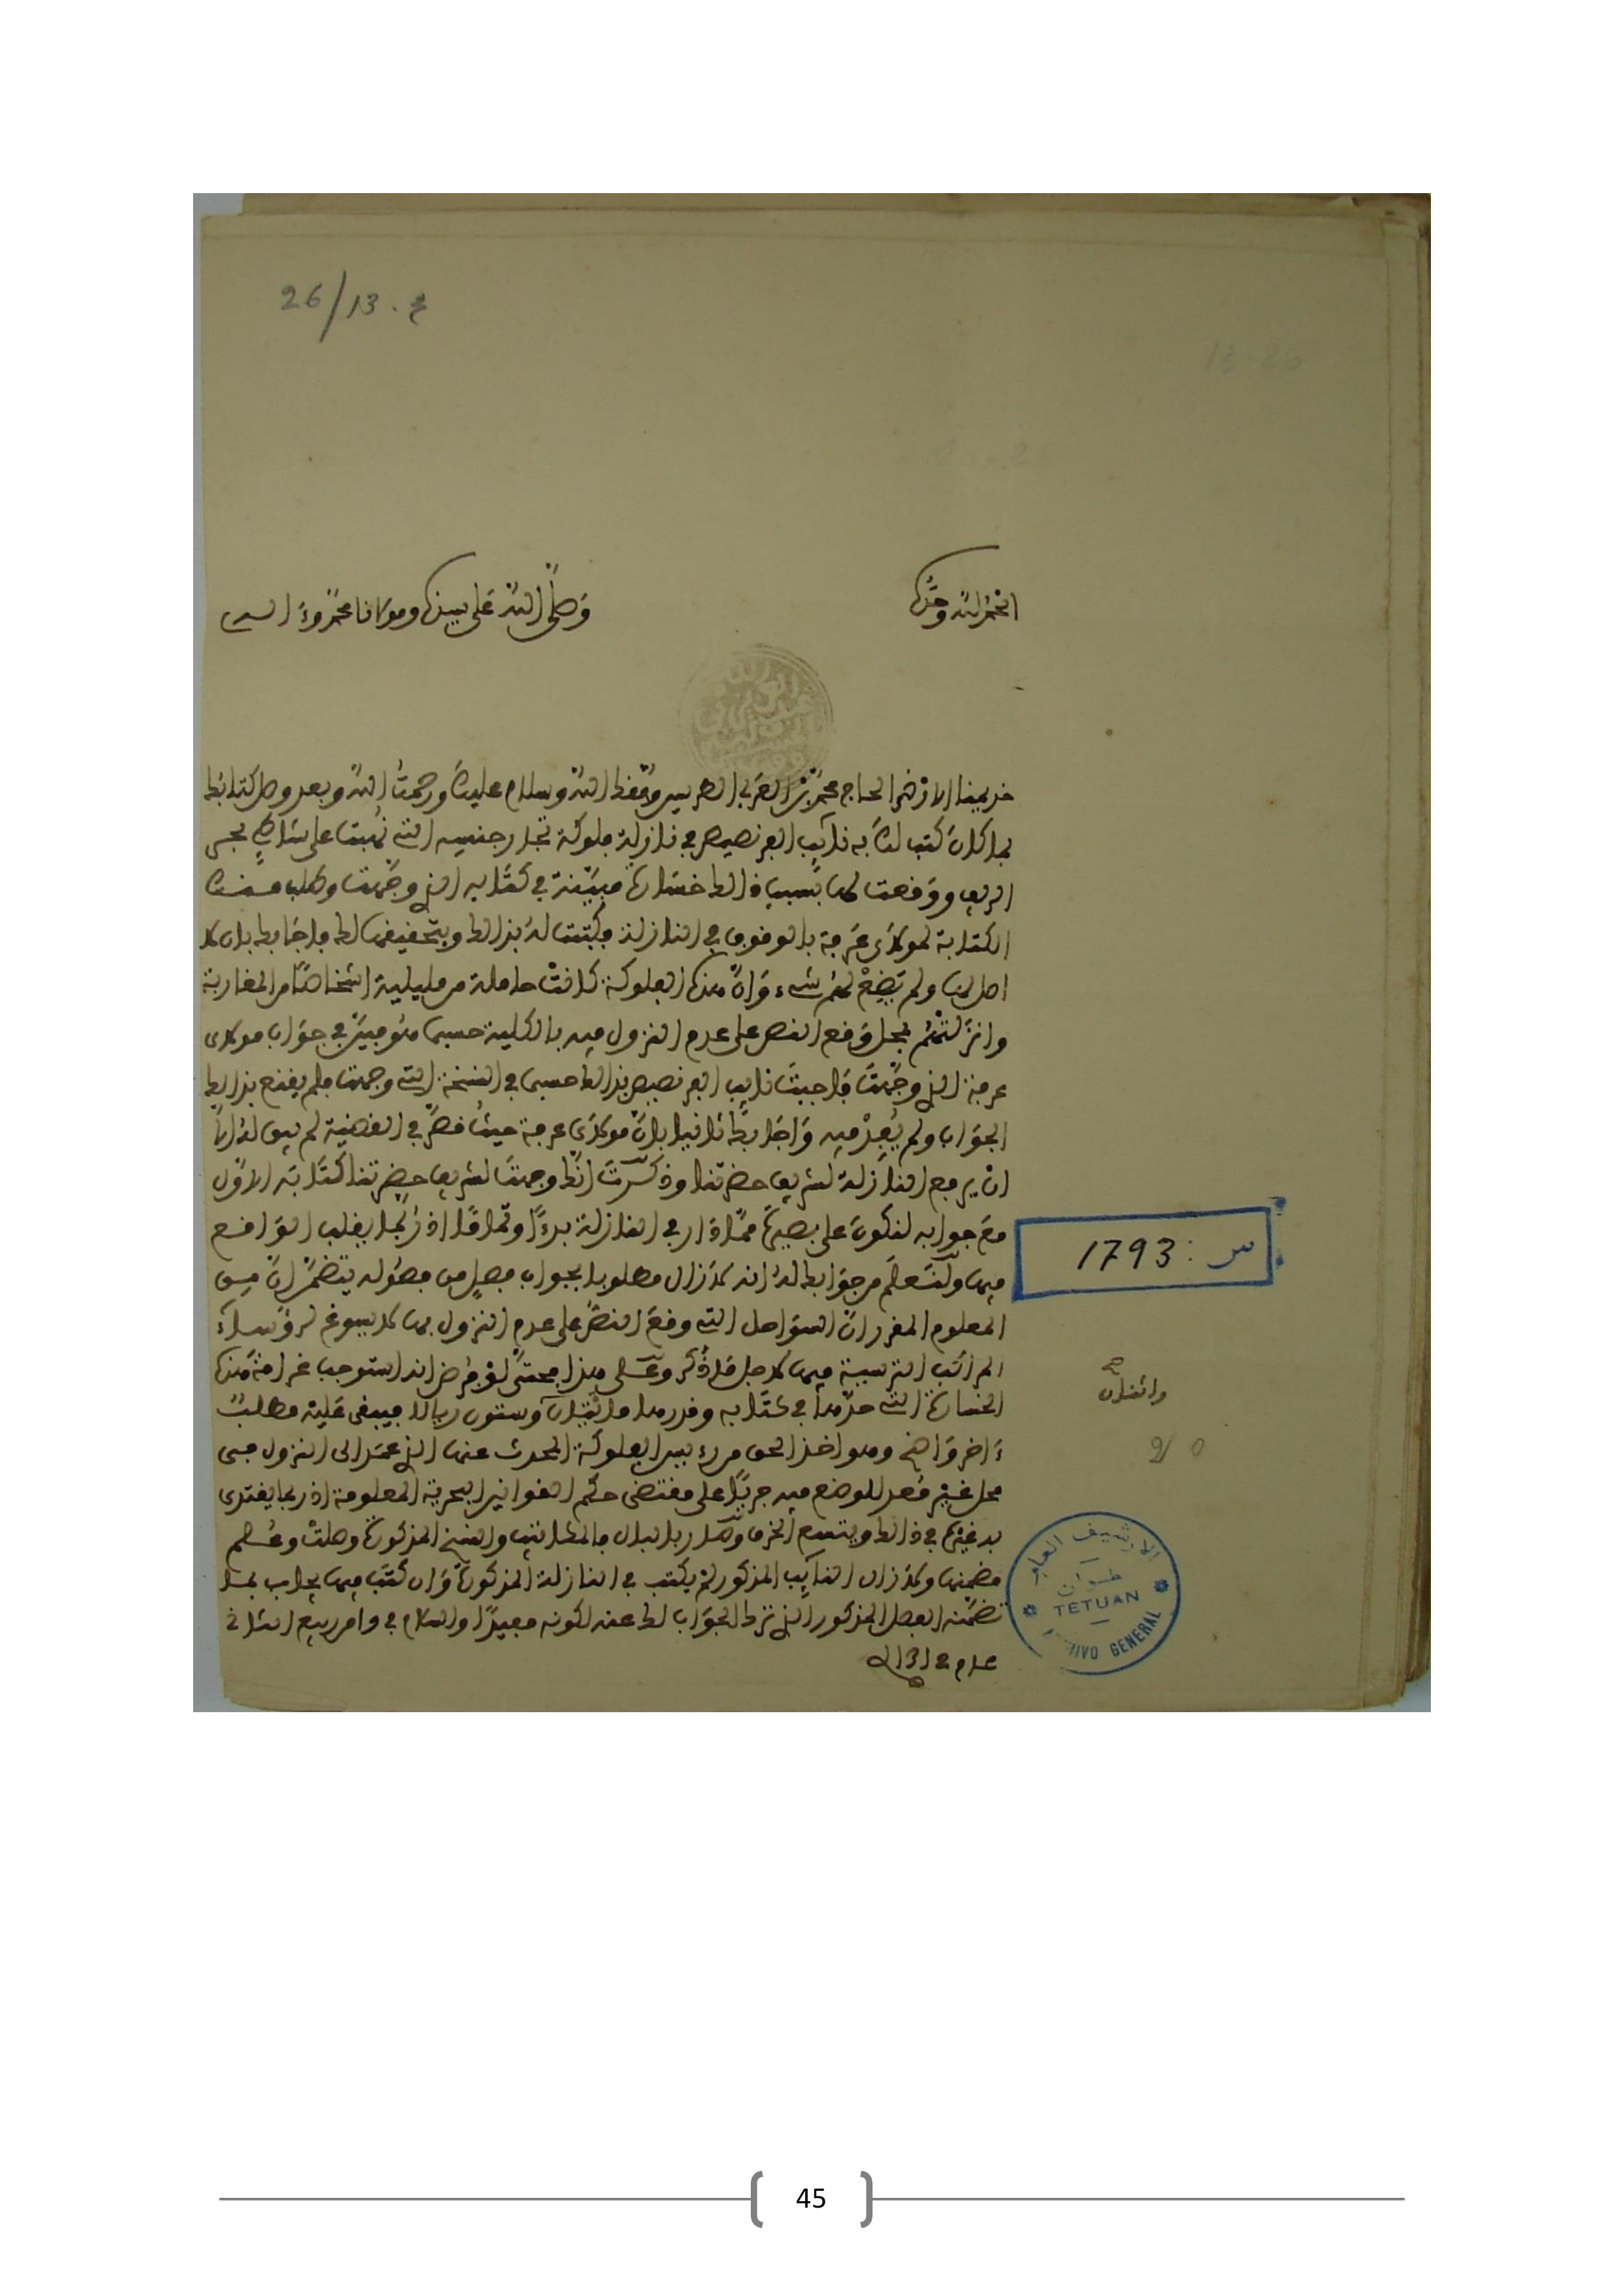 26/13. م
الحمد لله وحده
وصلى الله على سيدنا ومولانا محمد وءاله
خديمنا الارضى الحاج محمد بن العربي الطريس وفقك الله وسلام عليك ورحمت الله وبعد وصل كتابك
بما كان كتب لك به نائب الفرنصيص في نازلة فلوكة تجار جنسه التي نهبت على شاطئ بحر
الريف ووقعت لها بسبب ذالك خسارة مبينة في كتابه الذي وجهت وطلب منك
الكتابة لمولاي عرفة بالوقوف في النازلة فكتبت له بذالك وبتحقيقها لك فاجابك بان لا
اصل لها ولم يضع لهم شيء وان هذه الفلوكة كانت حاملة من مليلية اشخاصا من المغاربة
وانزلتهم بمحل وقع النص على عدم النزول فيه بالكلية حسبما هو مبين في جواب مولاي
عرفة الذي وجهت فاجبت نايب الفرنصيص بذالك حسبما في النسخة التي وجهت فلم يقنع بذالك
الجواب ولم يفد فيه واجابك ثانيا بان مولاي عرفة حيث قصر في القضية لم يبق له الا
ان يرفع النازلة لشريف حضرتنا وذكرت انك وجهت لشريف حضرتنا كتابه الاول
مع جوابه لنكون على بصيرة مما دار في النازلة بدءا وتماما اذ ربما يقلب الواقع
فيها ولتعلم من جوابك له انه لا زال مطلوبا بجواب فصل من فصوله يتضمن ان من
المعلوم المقرر ان السواحل التي وقع النص على عدم النزول بها لا يسوغ لرؤساء
المراكب الترسية فيها لاجل ما ذكر وعلى هذا فحتى لو فرض انه استوجب غرامة هذه
الخسارة التي حدها في كتابه وقدرها مائتان وستون ريالا فيبقى عليه مطلب
ءاخر واضح وهو اخذ الحق من رءيس الفلوكة المحدث عنها الذي عمد الى النزول في
محل غير معد للوضع فيه جريا على مقتضى حكم القوانين البحرية المعلومة اذ ربما يقتدي
به غيره في ذالك ويتسع الخرق وصار بالبال فالمكاتيب والنسخ المذكورة وصلت وعلم
مضمنها ولا زال النائب المذكور لم يكتب في النازلة المذكورة وان كتب فيها يجاب بما
تضمنه الفصل المذكور الذي ترك الجواب لك عنه لكونه مفيدا والسلام في وامر ربيع الثاني
عام 1312
س : 1793
وائتلاف
الارشيف العام
تطوان
TETUAN
ARCHIVO GENERAL
45